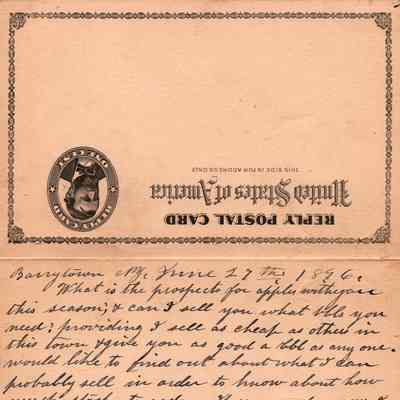 REPLY POSTAL CARD
United States of America
THIS SIDE IS FOR ADDRESS ONLY
ONE CENT
REPLY CARD
Barrytown N.Y. June 27th 1896.
What is the prospects for apples with you
this season; & can I sell you what bbls you
need; providing I sell as cheap as others in
this town & give you as good a bbl as any one.
would like to find out about what I can
probably sell in order to know about how
much stock to